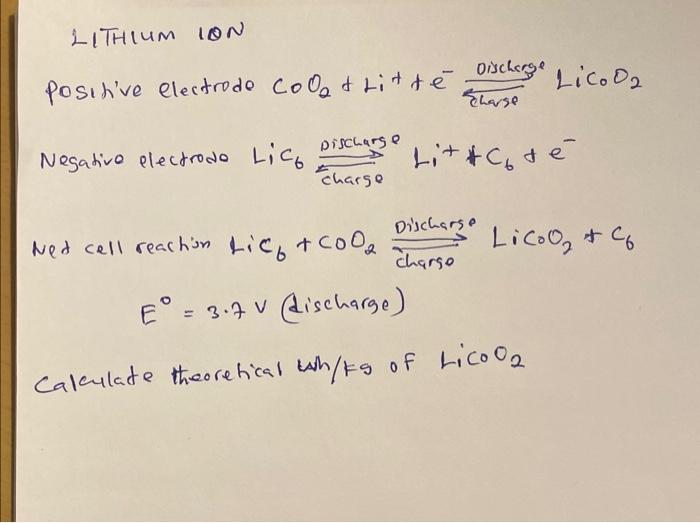 LITHIUM ION
Positive electrode CoO₂ + Li⁺ + e⁻ Discharge ⇌ Charge LiCoO₂
Negative electrode LiC₆ Discharge ⇌ Charge Li⁺ + C₆ + e⁻
Net cell reaction LiC₆ + CoO₂ Discharge ⇌ Charge LiCoO₂ + C₆
E° = 3.7 V (discharge)
Calculate theoretical kWh/kg of LiCoO₂